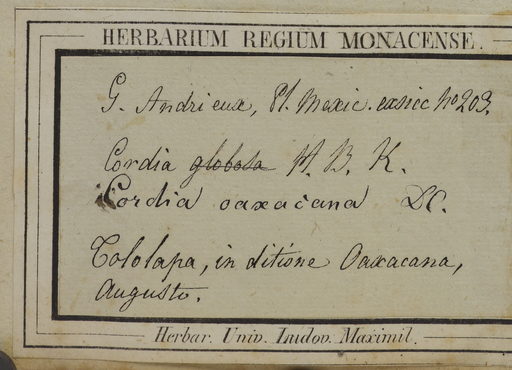 HERBARIUM REGIUM MONACENSE.
G. Andrieux, Pl. Mexic. exsicc No 203.
Cordia globosa H. B. K.
Cordia oaxacana DC.
Tololapa, in ditione Oaxacana,
Augusto.
Herbar. Univ. Ludov. Maximil.